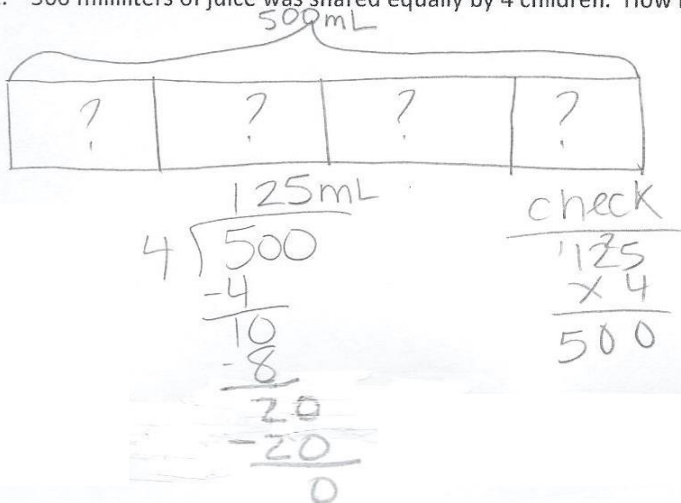 500 milliliters of juice was shared equally by 4 children. How
500mL
? ? ? ?
125mL
4 500
-4
10
-8
20
-20
0
check
125
x 4
500